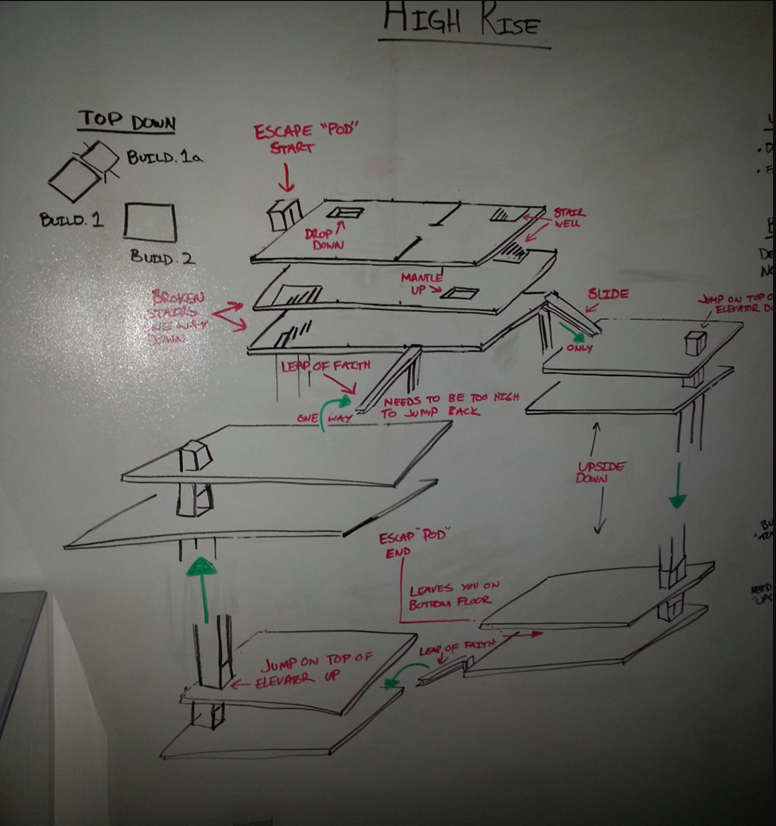 HIGH RISE
TOP DOWN
BUILD. 1a
BUILD. 1
BUILD. 2
ESCAPE "POD"
START
DROP
DOWN
STAIR
WELL
MANTLE
UP
BROKEN
STAIRS
ONE WAY
DOWN
SLIDE
ONLY
JUMP ON TOP O
ELEVATOR DO
LEAP OF FAITH
ONE WAY
NEEDS TO BE TOO HIGH
TO JUMP BACK
UPSIDE
DOWN
ESCAP "POD"
END
LEAVES YOU ON
BOTTOM FLOOR
LEAP OF FAITH
JUMP ON TOP OF
ELEVATOR UP